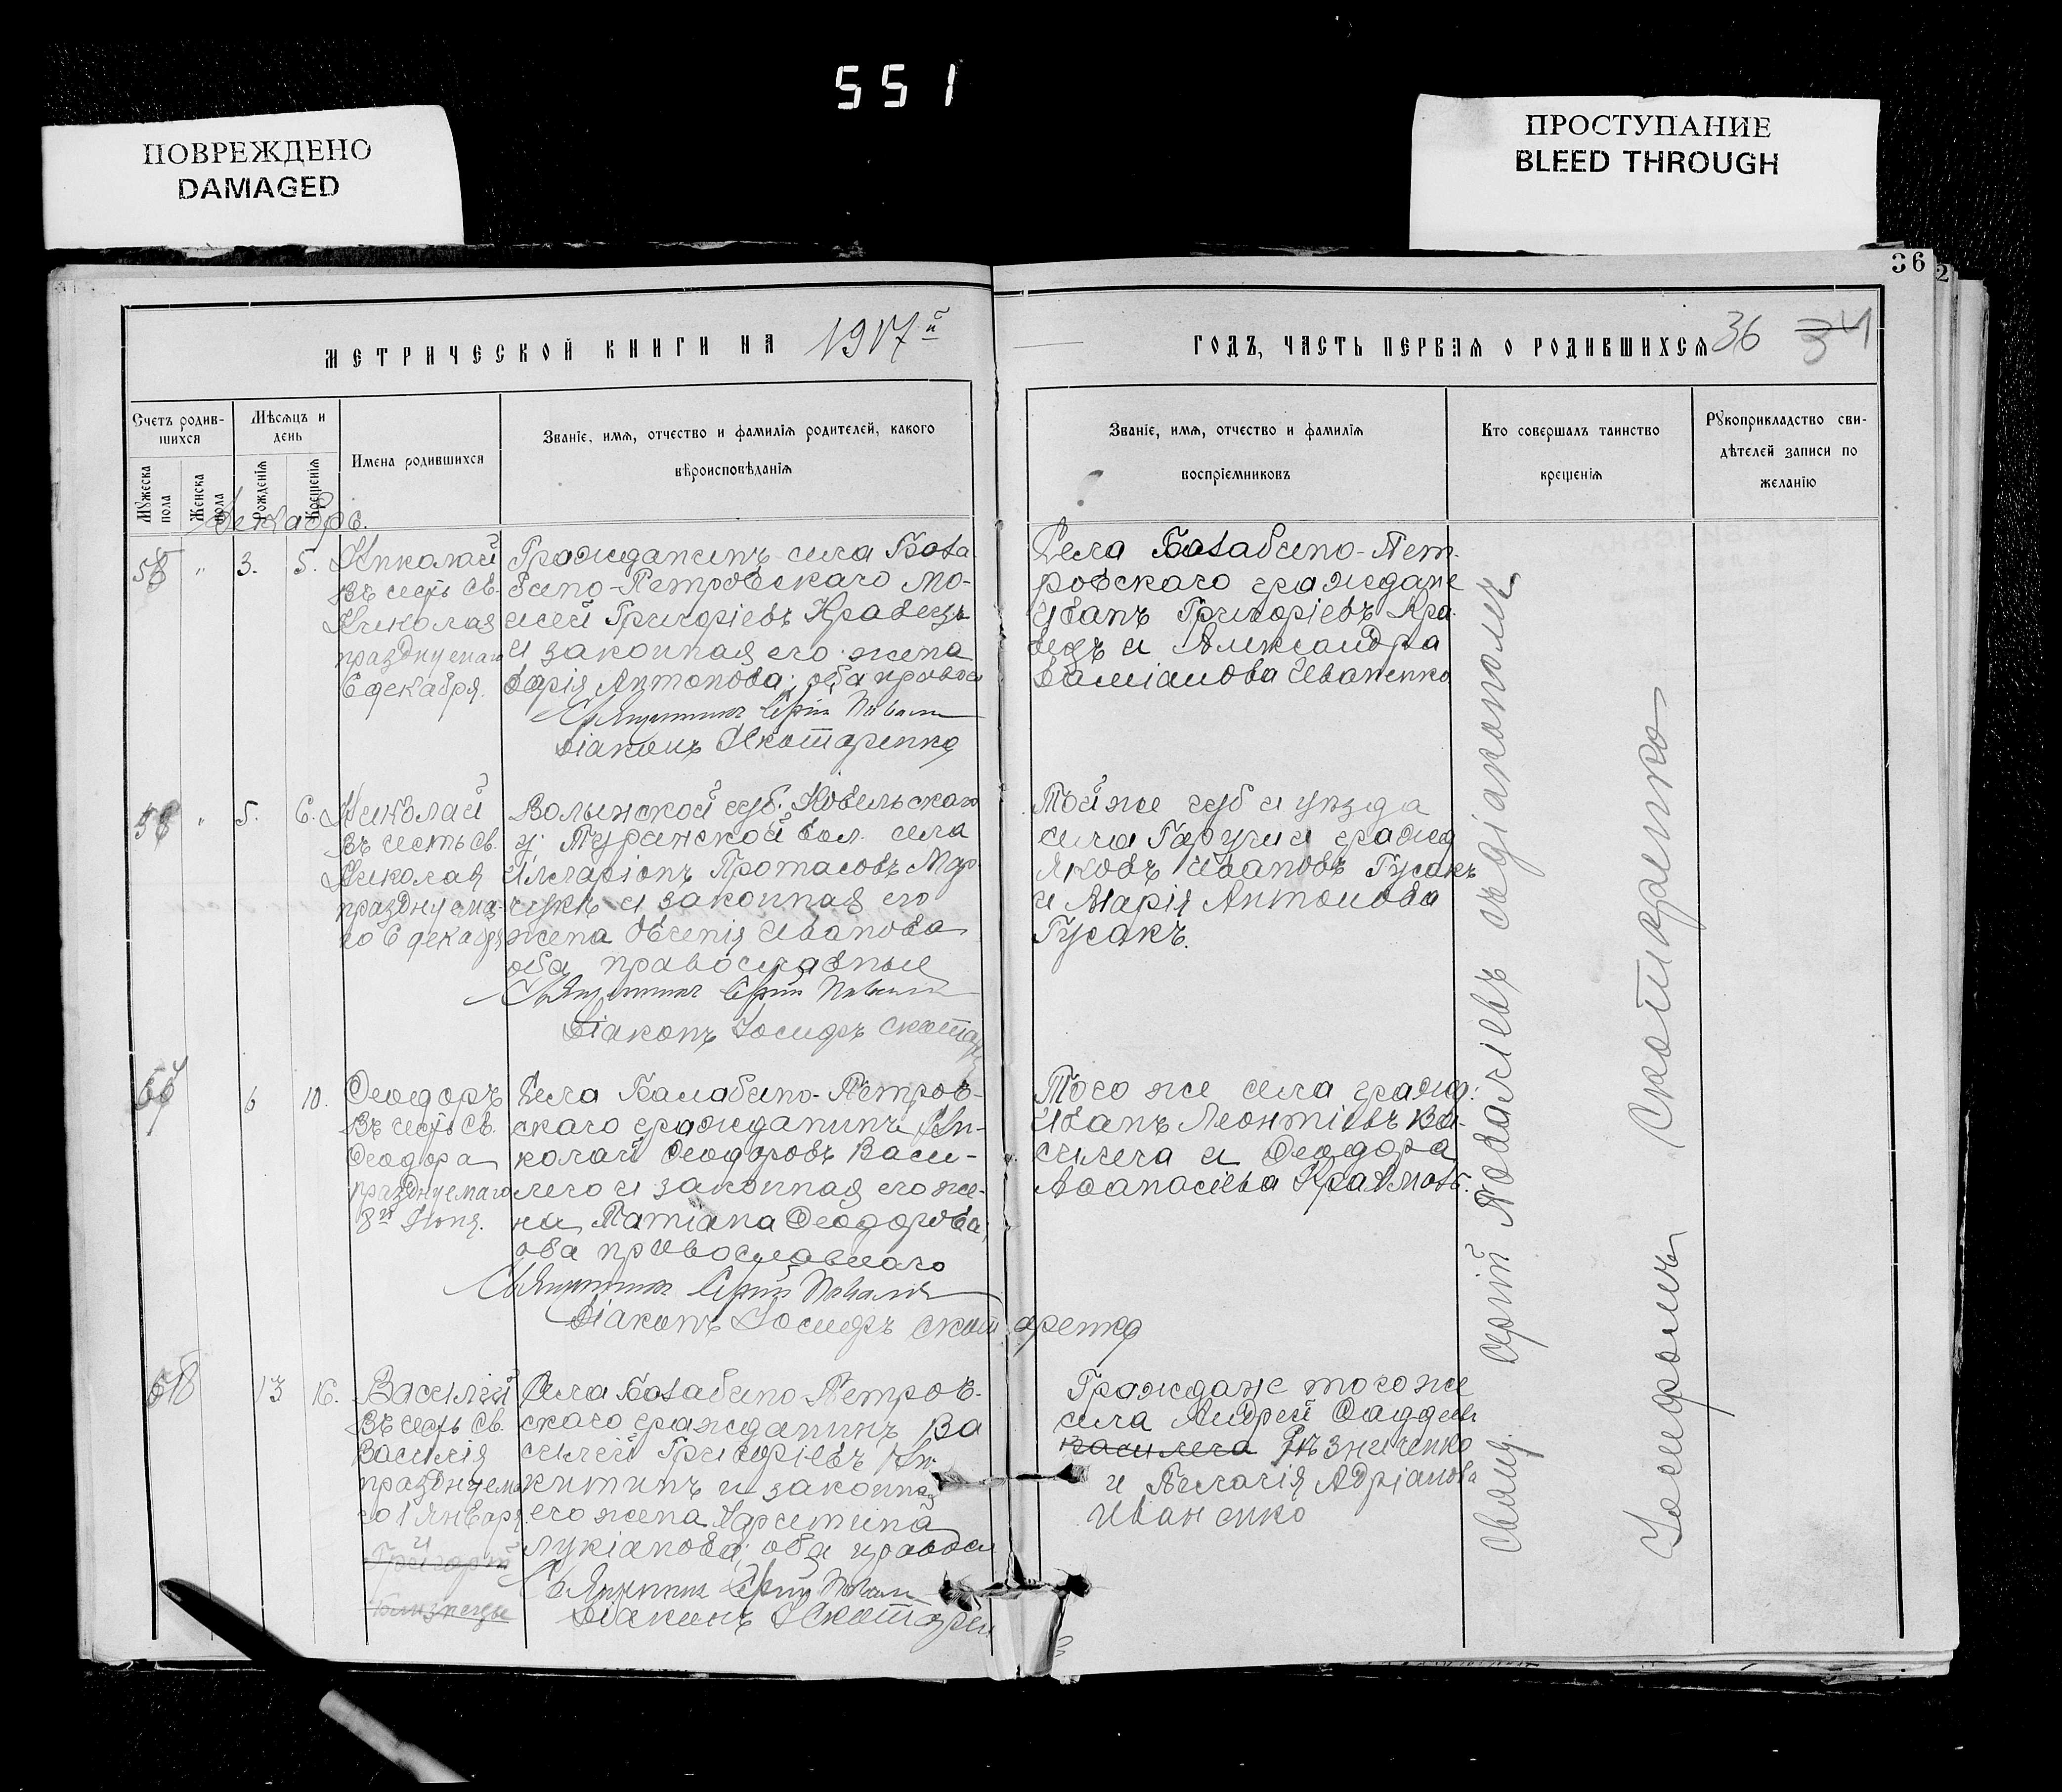 551
ПОВРЕЖДЕНО
DAMAGED
ПРОСТУПАНИЕ
BLEED THROUGH
36
2
МЕТРИЧЕСКОЙ КНИГИ НА 1917й
ГОДЪ, ЧАСТЬ ПЕРВАЯ О РОДИВШИХСЯ 36 34
Счетъ родив-
шихся
Мужеска пола
Женска пола
Мѣсяцъ и
день
Рожденія
Крещенія
Имена родившихся
Званіе, имя, отчество и фамилія родителей, какого
вѣроисповѣданія
Званіе, имя, отчество и фамилія
воспріемниковъ
Кто совершалъ таинство
крещенія
Рукоприкладство сви-
дѣтелей записи по
желанію
Декабрь.
58 " 3. 5.
Николай
въ честь св.
Николая
празднуемаго
6 декабря.
Гражданинъ села Бала
бино-Петровскаго Мо-
исей Григоріевъ Кравецъ
и законная его жена
Дарія Антонова; оба правосл
Священникъ Сергій Поваліевъ
Діаконъ І Скотаренко
Села Балабино-Пет-
ровскаго граждане
Иванъ Григоріевъ Кра-
вецъ и Александра
Даміанова Иваненко
5. 6.
Николай
въ честь св.
Николая
празднуема-
го 6 декабря
Волынской губ. Ковельскаго
у. Турійской вол. села
Иларіонъ Протасовъ Мар-
чукъ и законная его
жена Евгенія Иванова
оба православные
Священникъ Сергій Поваліевъ
Діаконъ Іосифъ Скотар
Той же губ и уѣзда
села гражд
Яковъ Ивановъ Гусакъ
и Марія Антонова
Гусакъ.
6 10.
Ѳеодоръ
въ честь св.
Ѳеодора
празднуемаго
8го Іюня.
Села Балабино-Петров-
скаго гражданинъ Ни-
колай Ѳеодоровъ Васи-
лега и законная его же-
на Татіана Ѳеодорова,
оба православнаго
Священникъ Сергій Поваліевъ
Діаконъ Іосифъ Скотаренко
Того же села гражд:
Иванъ Леонтіевъ Ва-
силега и Ѳеодора
Аѳанасіева
13 16.
Василій
въ честь св.
Василія
празднуема
го 1 Января
и
Григорій
близнецы
Села Балабино Петров-
скаго гражданинъ Ва
силій Григоріевъ Ни-
китинъ и законная
его жена Харитина
Лукіанова; оба правосл
Священникъ Сергій Поваліевъ
Діаконъ І Скотарен
Граждане того же
села Андрей Ѳаддеевъ
Василега Рѣзниченко
и Пелагія Адріанова
Иваненко
Священ. Сергій Поваліевъ съ діакономъ
Іосифомъ Скотаренко